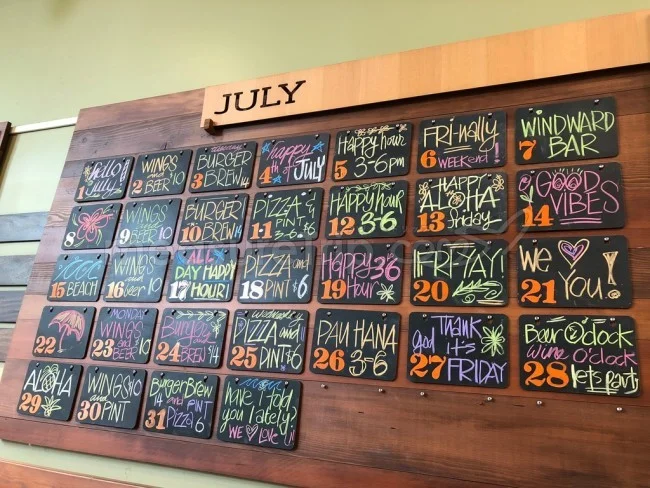 JULY
Hello July! 1
WINGS and BEER 10 2
BURGER and BREW 14 3
happy 4th of JULY
Happy hour 5 3-6pm
FRI-nally 6 WEEKEND!
7 WINDWARD BAR
8
WINGS 9 and BEER 10
BURGER 10 and BREW 14
PIZZA & 11 PINT $6
HAPPY hour 12 3-6
HAPPY ALOHA 13 friday
14 GOOD VIBES
15 BEACH
WINGS and 16 beer 10
ALL DAY HAPPY 17 HOUR!
PIZZA and 18 PINT $6
Happy 36 19 HOUR
IFRIYAY! 20
We YOU! 21
22
MONDAY WINGS and 23 BEER
BURGER and 24 BREW
Wednesday PIZZA and 25 PINT $6
PAU HANA 26 3-6
THANK God IT'S 27 FRIDAY
Beer O'clock Wine O'clock 28 lets party
ALOHA 29
WINGS 10 and 30 PINT
BURGER BREW 31 and PINT PIZZA 6
have I told you lately? WE LOVE U!